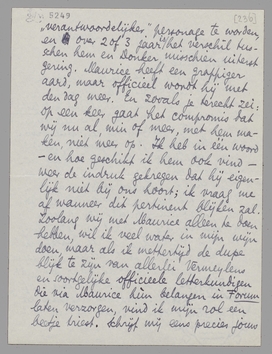 B 5249
[236]
„verantwoordelijke” personage te worden,
en over 2 of 3 jaar is het verschil tus-
schen hem en Donker misschien uiterst
gering. Maurice heeft een grappiger
aard, maar officieel wordt hij met
den dag meer. En zooals je terecht zei:
op een keer gaat het compromis dat
wij nu al, min of meer, met hem ma-
ken niet meer op. Ik heb in één woord
– en hoe geschikt ik hem ook vind –
weer de indruk gekregen dat hij eigen-
lijk niet bij ons hoort; ik vraag me
af wanneer dit pertinent blijken zal.
Zoolang wij met Maurice alleen te doen
hebben, wil ik veel water in mijn wijn
doen maar als ik mettertijd de dupe
blijk te zijn van allerlei Vermeylens
en soortgelijke officieele letterkundigen
die via Maurice hun belangen in Forum
laten verzorgen, vind ik mijn rol een
beetje triest. Schrijf mij eens precies jouw